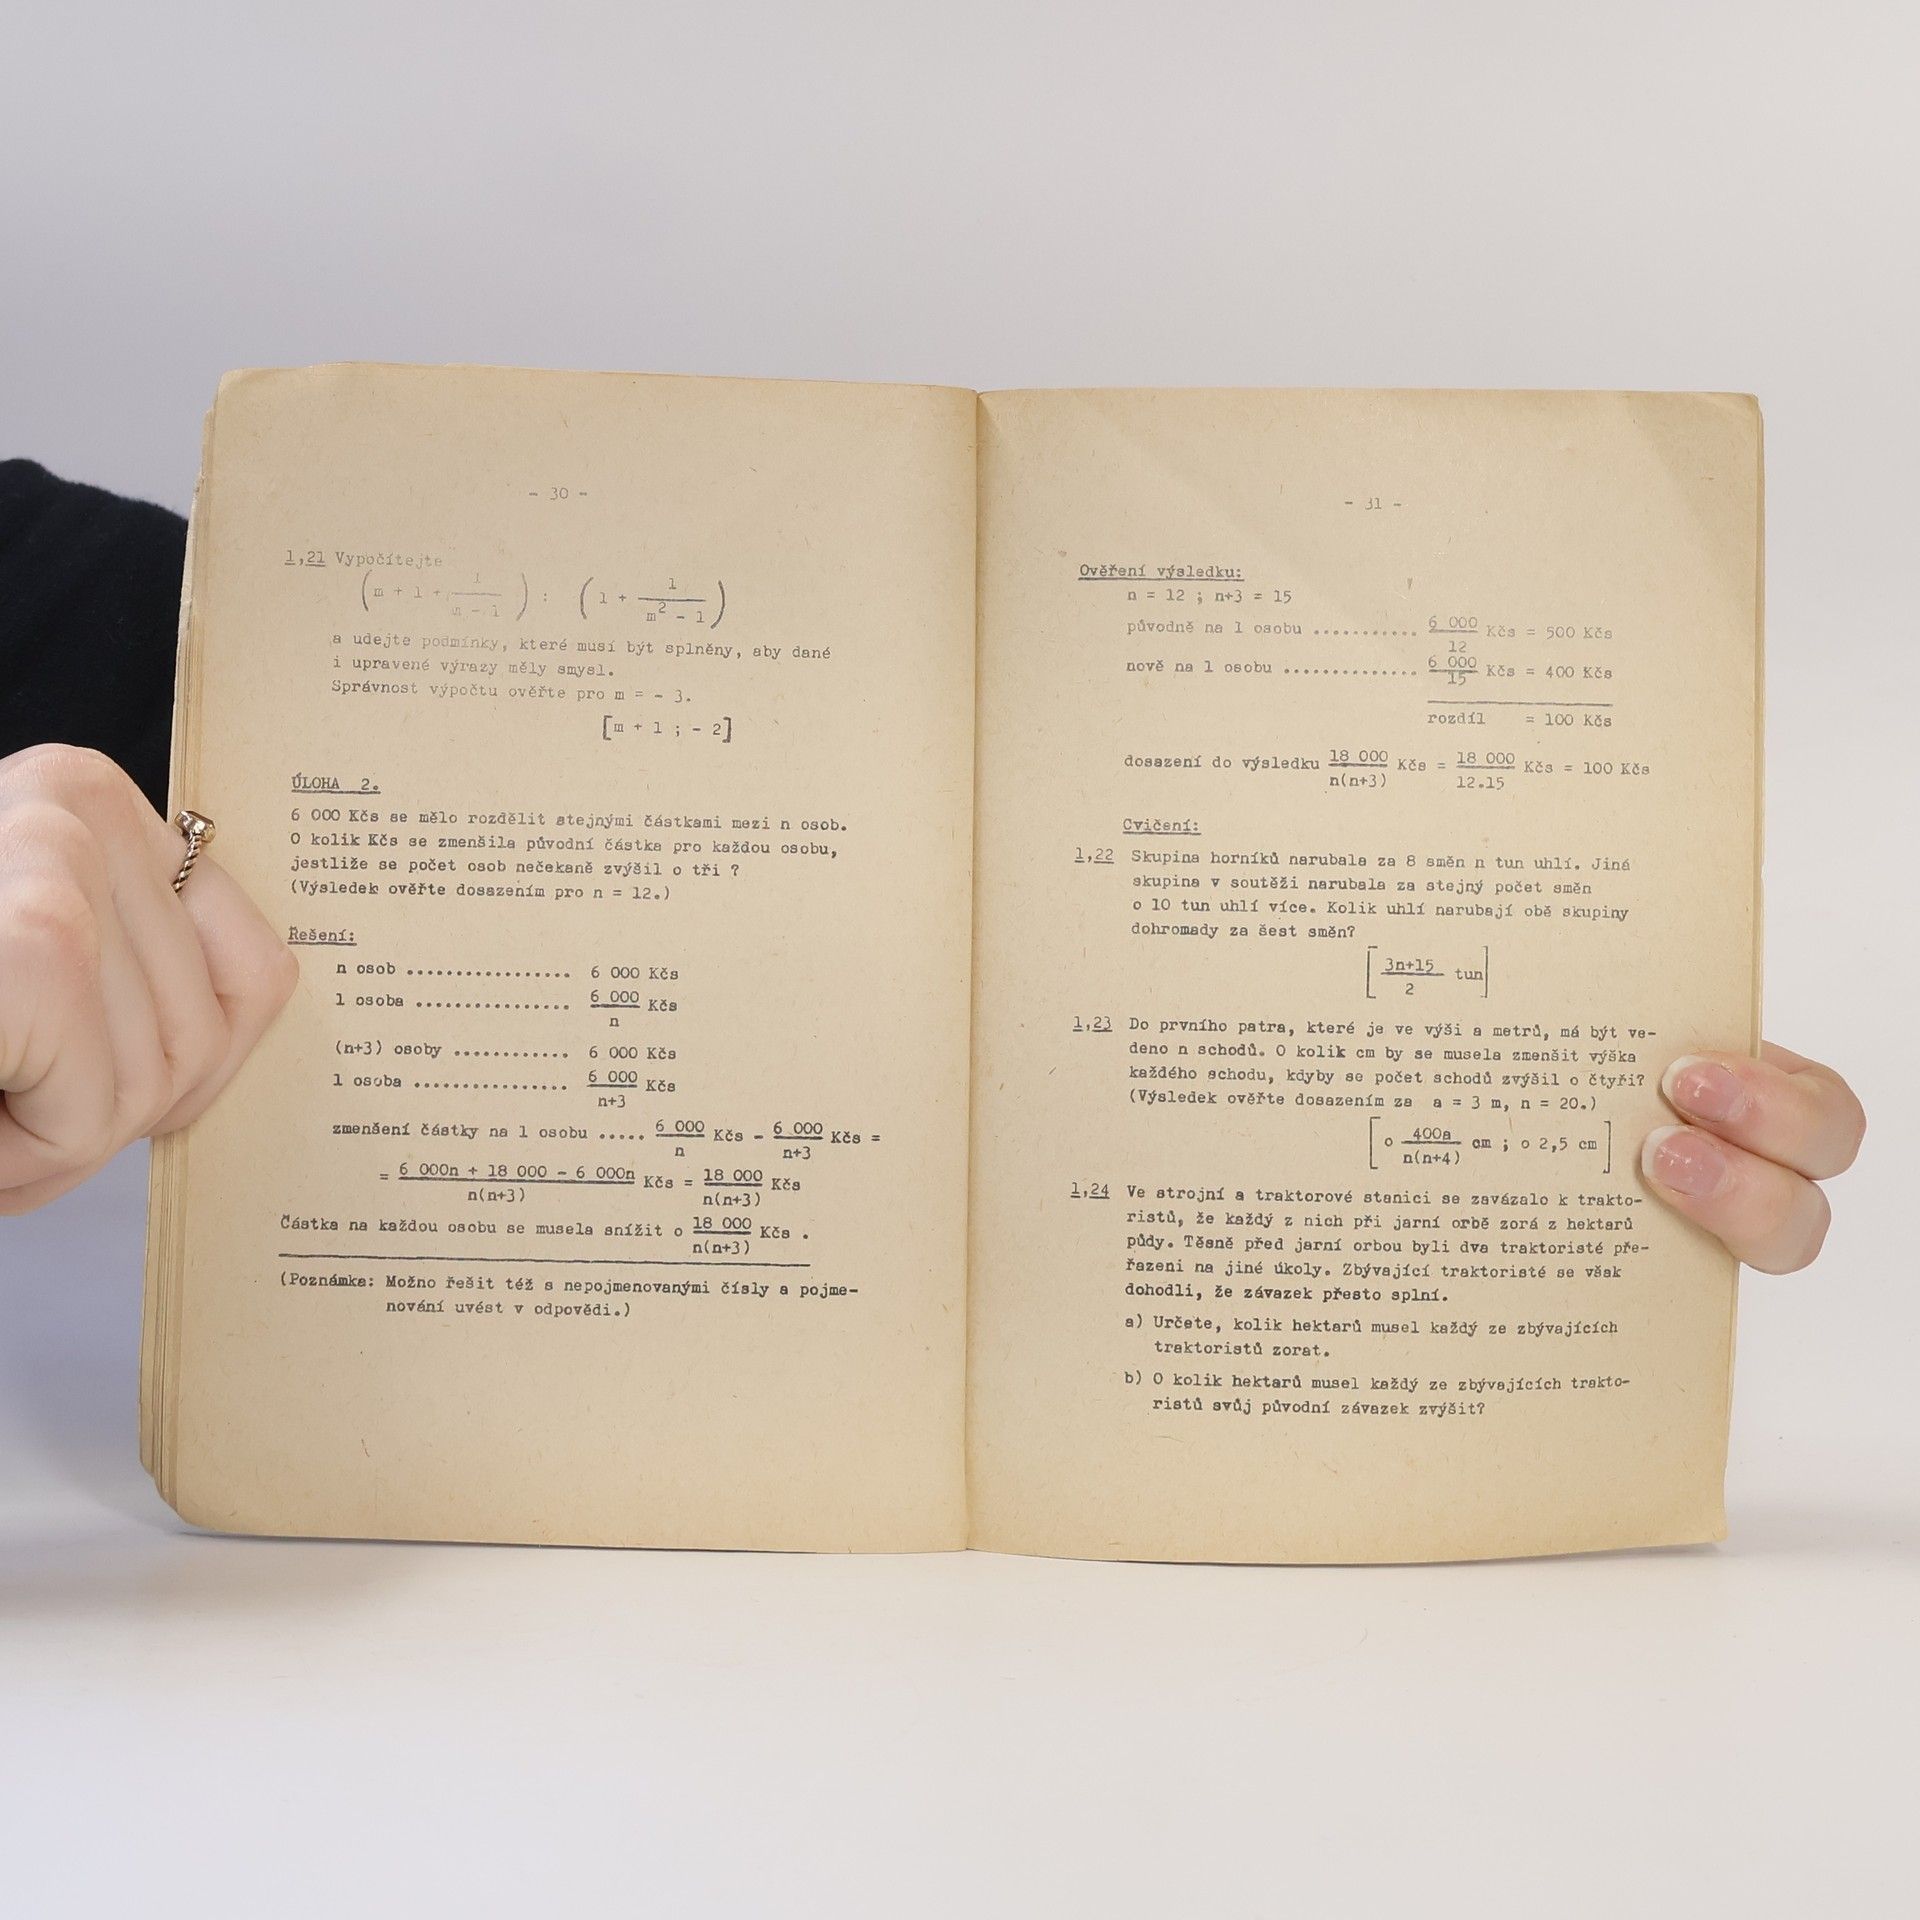 - 30 -
1,21 Vypočítejte
(m + 1 + 1/(m - 1)) : (1 + 1/(m² - 1))
a udejte podmínky, které musí být splněny, aby dané
i upravené výrazy měly smysl.
Správnost výpočtu ověřte pro m = - 3.
[m + 1 ; - 2]
ÚLOHA 2.
6 000 Kčs se mělo rozdělit stejnými částkami mezi n osob.
O kolik Kčs se zmenšila původní částka pro každou osobu,
jestliže se počet osob nečekaně zvýšil o tři ?
(Výsledek ověřte dosazením pro n = 12.)
Řešení:
n osob ................. 6 000 Kčs
1 osoba ................ 6 000/n Kčs
(n+3) osoby ............ 6 000 Kčs
1 osoba ................ 6 000/(n+3) Kčs
zmenšení částky na 1 osobu ..... 6 000/n Kčs - 6 000/(n+3) Kčs =
= (6 000n + 18 000 - 6 000n)/(n(n+3)) Kčs = 18 000/(n(n+3)) Kčs
Částka na každou osobu se musela snížit o 18 000/(n(n+3)) Kčs .
(Poznámka: Možno řešit též s nepojmenovanými čísly a pojme-
nování uvést v odpovědi.)
- 31 -
Ověření výsledku:
n = 12 ; n+3 = 15
původně na 1 osobu ........... 6 000/12 Kčs = 500 Kčs
nově na 1 osobu .............. 6 000/15 Kčs = 400 Kčs
rozdíl = 100 Kčs
dosazení do výsledku 18 000/(n(n+3)) Kčs = 18 000/12.15 Kčs = 100 Kčs
Cvičení:
1,22 Skupina horníků narubala za 8 směn n tun uhlí. Jiná
skupina v soutěži narubala za stejný počet směn
o 10 tun uhlí více. Kolik uhlí narubají obě skupiny
dohromady za šest směn?
[(3n+15)/2 tun]
1,23 Do prvního patra, které je ve výši a metrů, má být ve-
deno n schodů. O kolik cm by se musela zmenšit výška
každého schodu, kdyby se počet schodů zvýšil o čtyři?
(Výsledek ověřte dosazením za a = 3 m, n = 20.)
[o 400a/(n(n+4)) cm ; o 2,5 cm]
1,24 Ve strojní a traktorové stanici se zavázalo k trakto-
ristů, že každý z nich při jarní orbě zorá z hektarů
půdy. Těsně před jarní orbou byli dva traktoristé pře-
řazeni na jiné úkoly. Zbývající traktoristé se však
dohodli, že závazek přesto splní.
a) Určete, kolik hektarů musel každý ze zbývajících
traktoristů zorat.
b) O kolik hektarů musel každý ze zbývajících trakto-
ristů svůj původní závazek zvýšit?